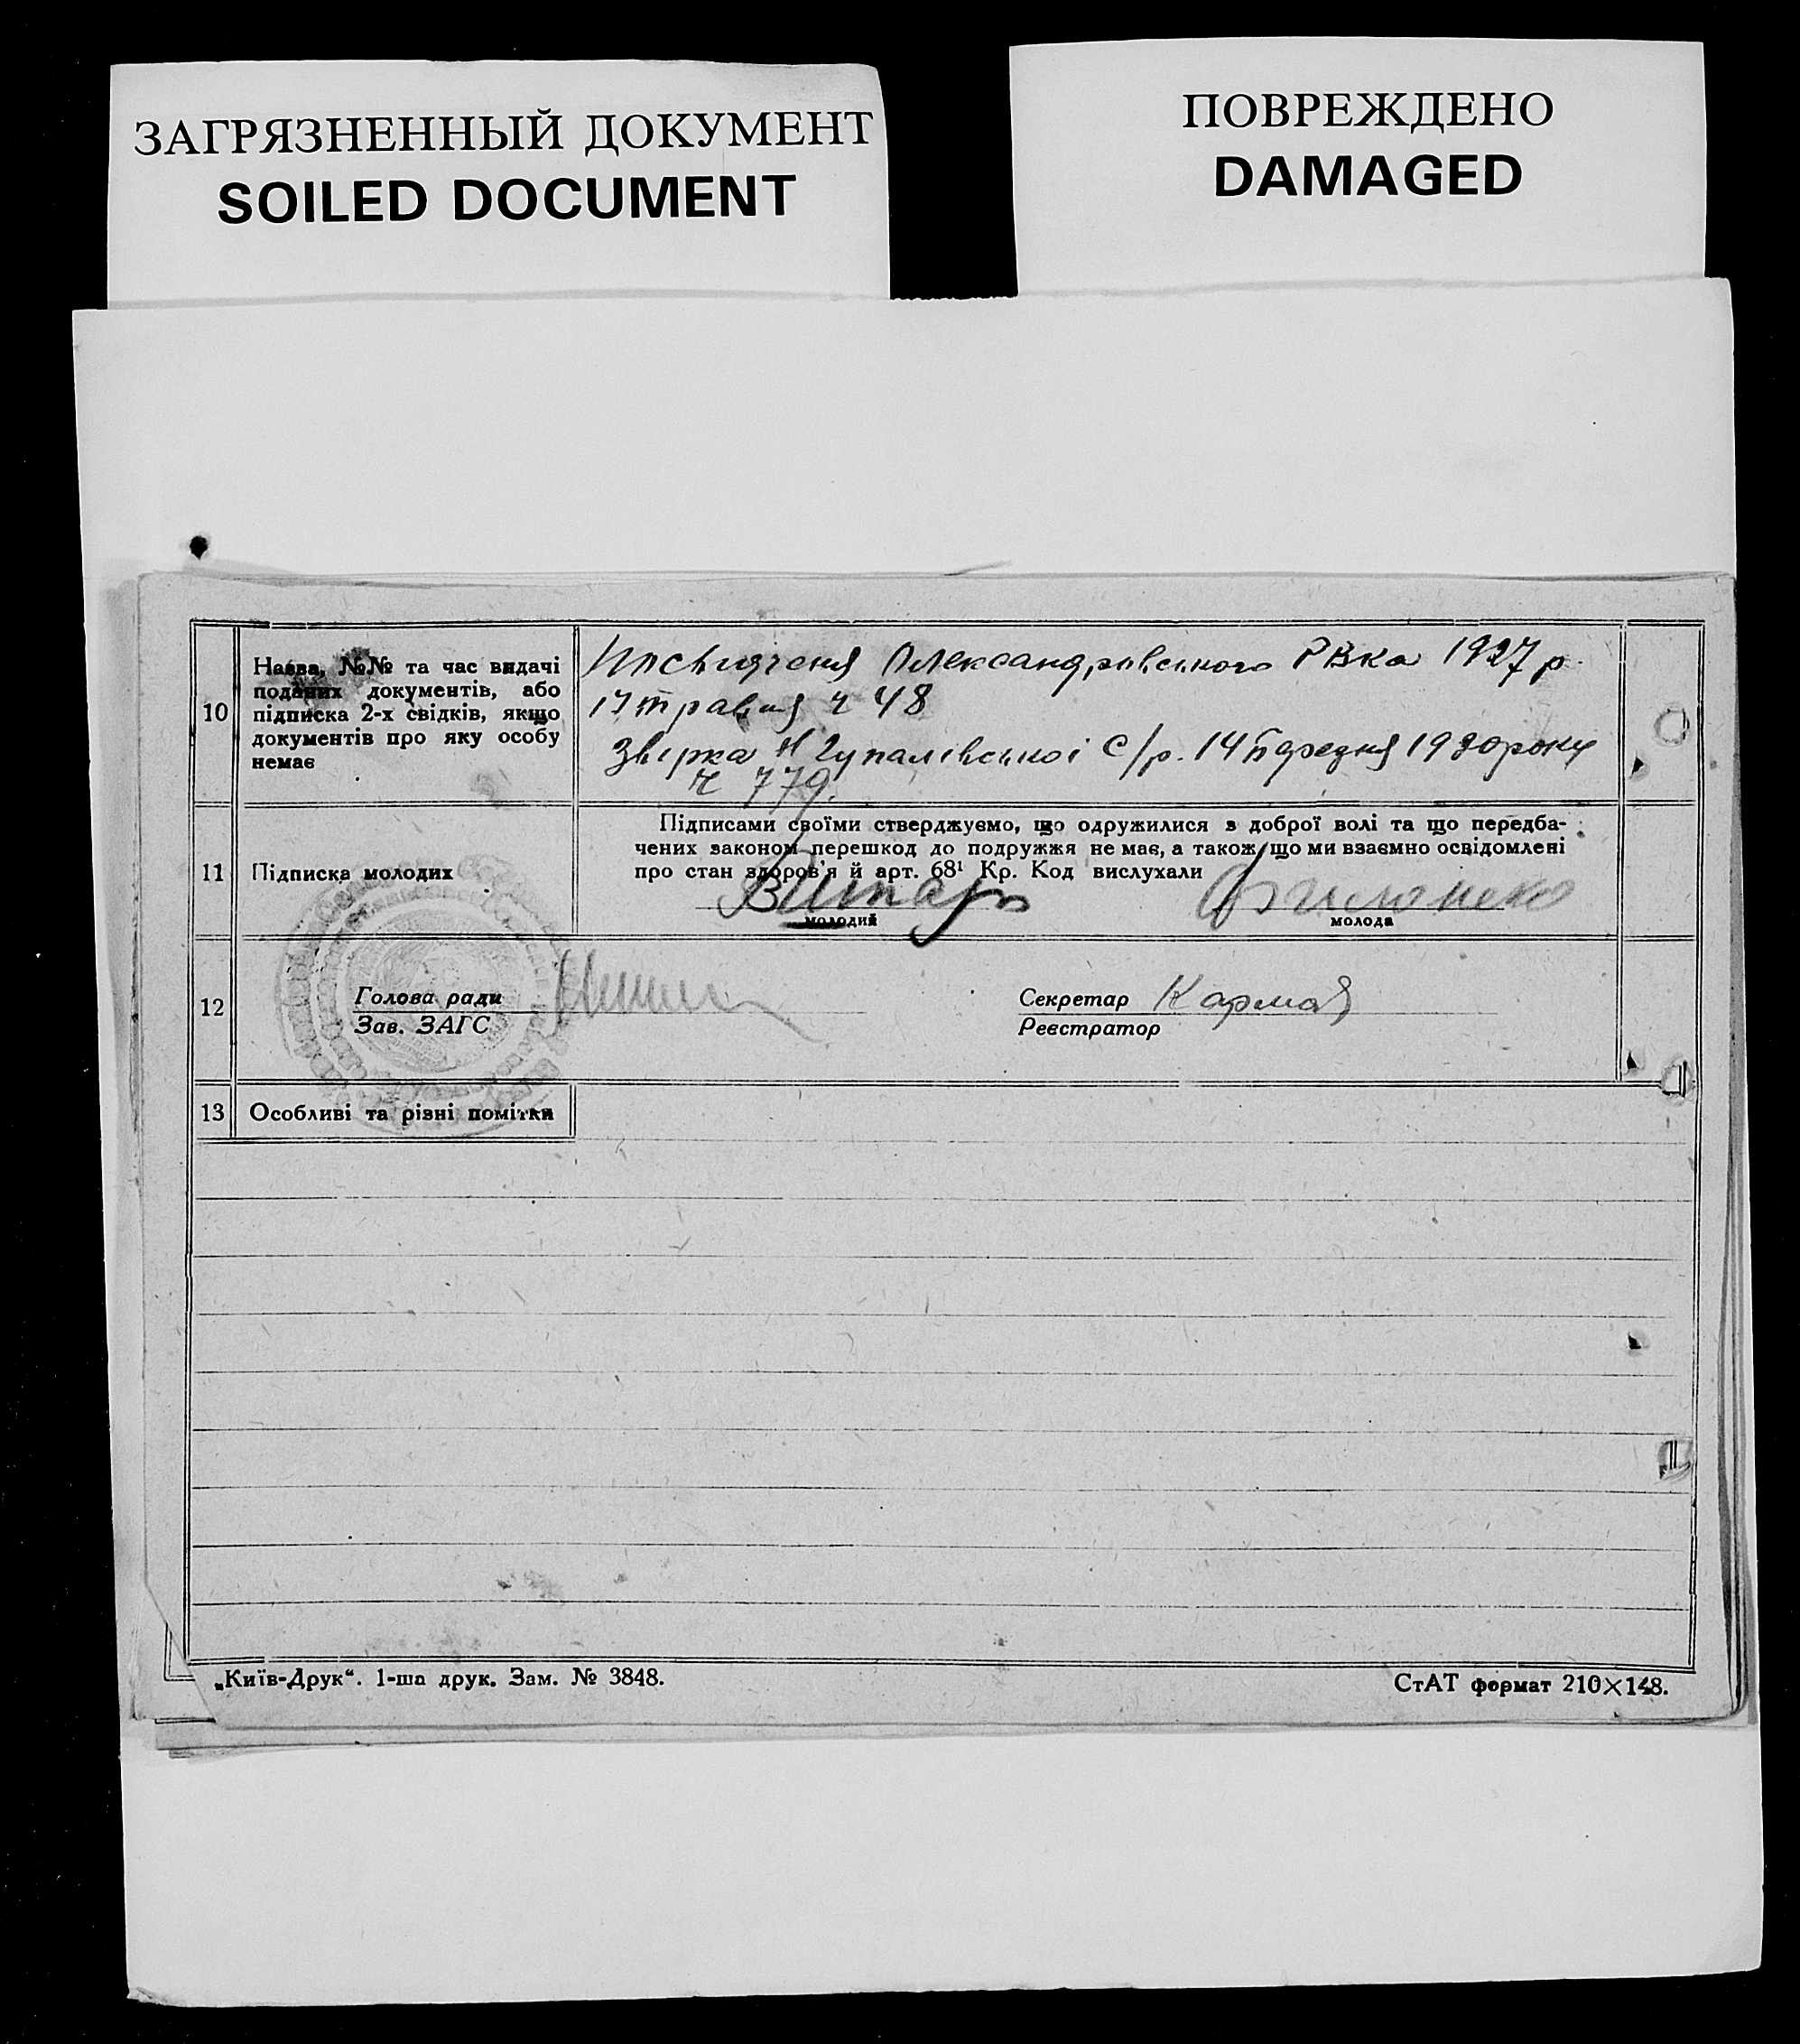 ЗАГРЯЗНЕННЫЙ ДОКУМЕНТ
SOILED DOCUMENT
ПОВРЕЖДЕНО
DAMAGED
10
Назва, №№ та час видачі
поданих документів, або
підписка 2-х свідків, якщо
документів про яку особу
немає
Посвідченя Олександрівського РВка 1927 р.
17 травня ч 48
Звірка Чупалівської С/р. 14 1930 року
ч 779.
11
Підписка молодих
Підписами своїми стверджуємо, що одружилися з доброї волі та що передба-
чених законом перешкод до подружжя не має, а також що ми взаємно освідомлені
про стан здоров'я й арт. 68¹ Кр. Код вислухали
молодий
молода
12
Голова ради
Зав. ЗАГС
Секретар
Реєстратор
13
Особливі та різні помітки
„Київ-Друк“. 1-ша друк. Зам. № 3848.
СтАТ формат 210×148.